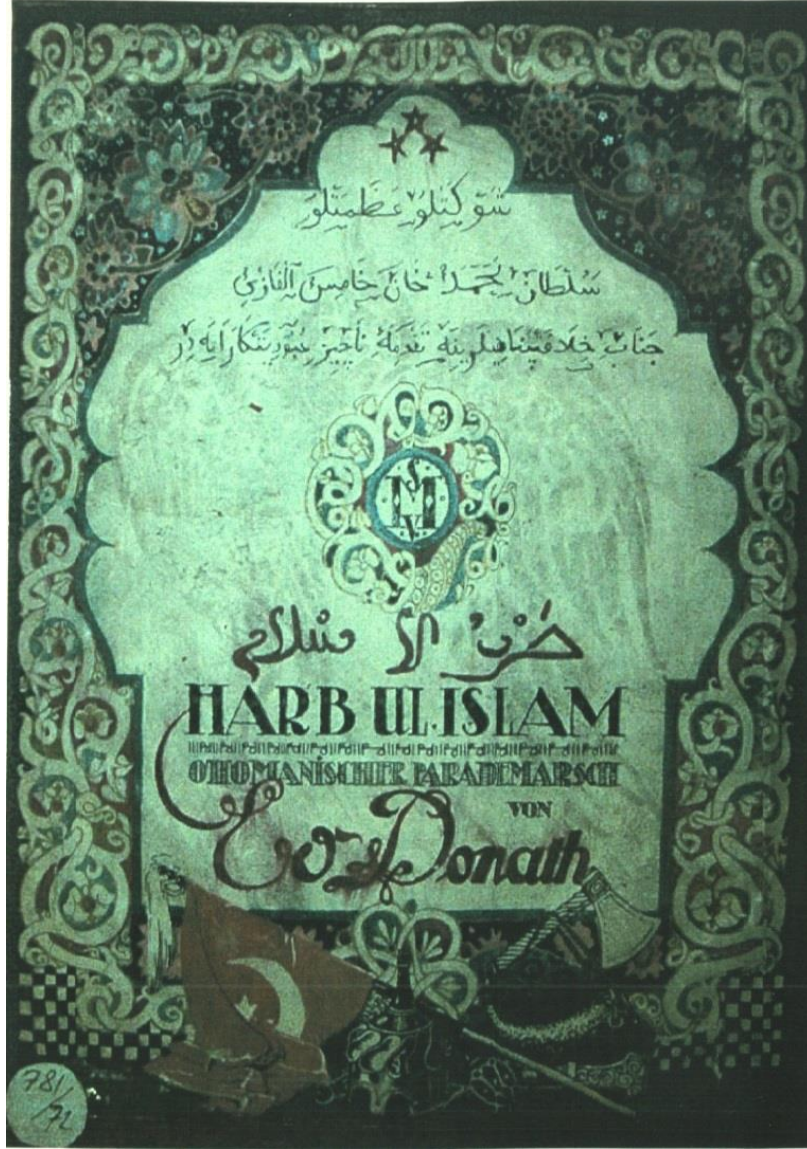 شوكتلو عظمتلو
سلطان محمد خان خامس الغازى
جناب خلافتپناهيلرينه تقدمهٔ ناچيز عبوديتكارانه در
S
M
V
حرب الاسلام
HARB UL.ISLAM
OTTOMANİSCHER PARADEMARSCH
VON
Donath
781/72